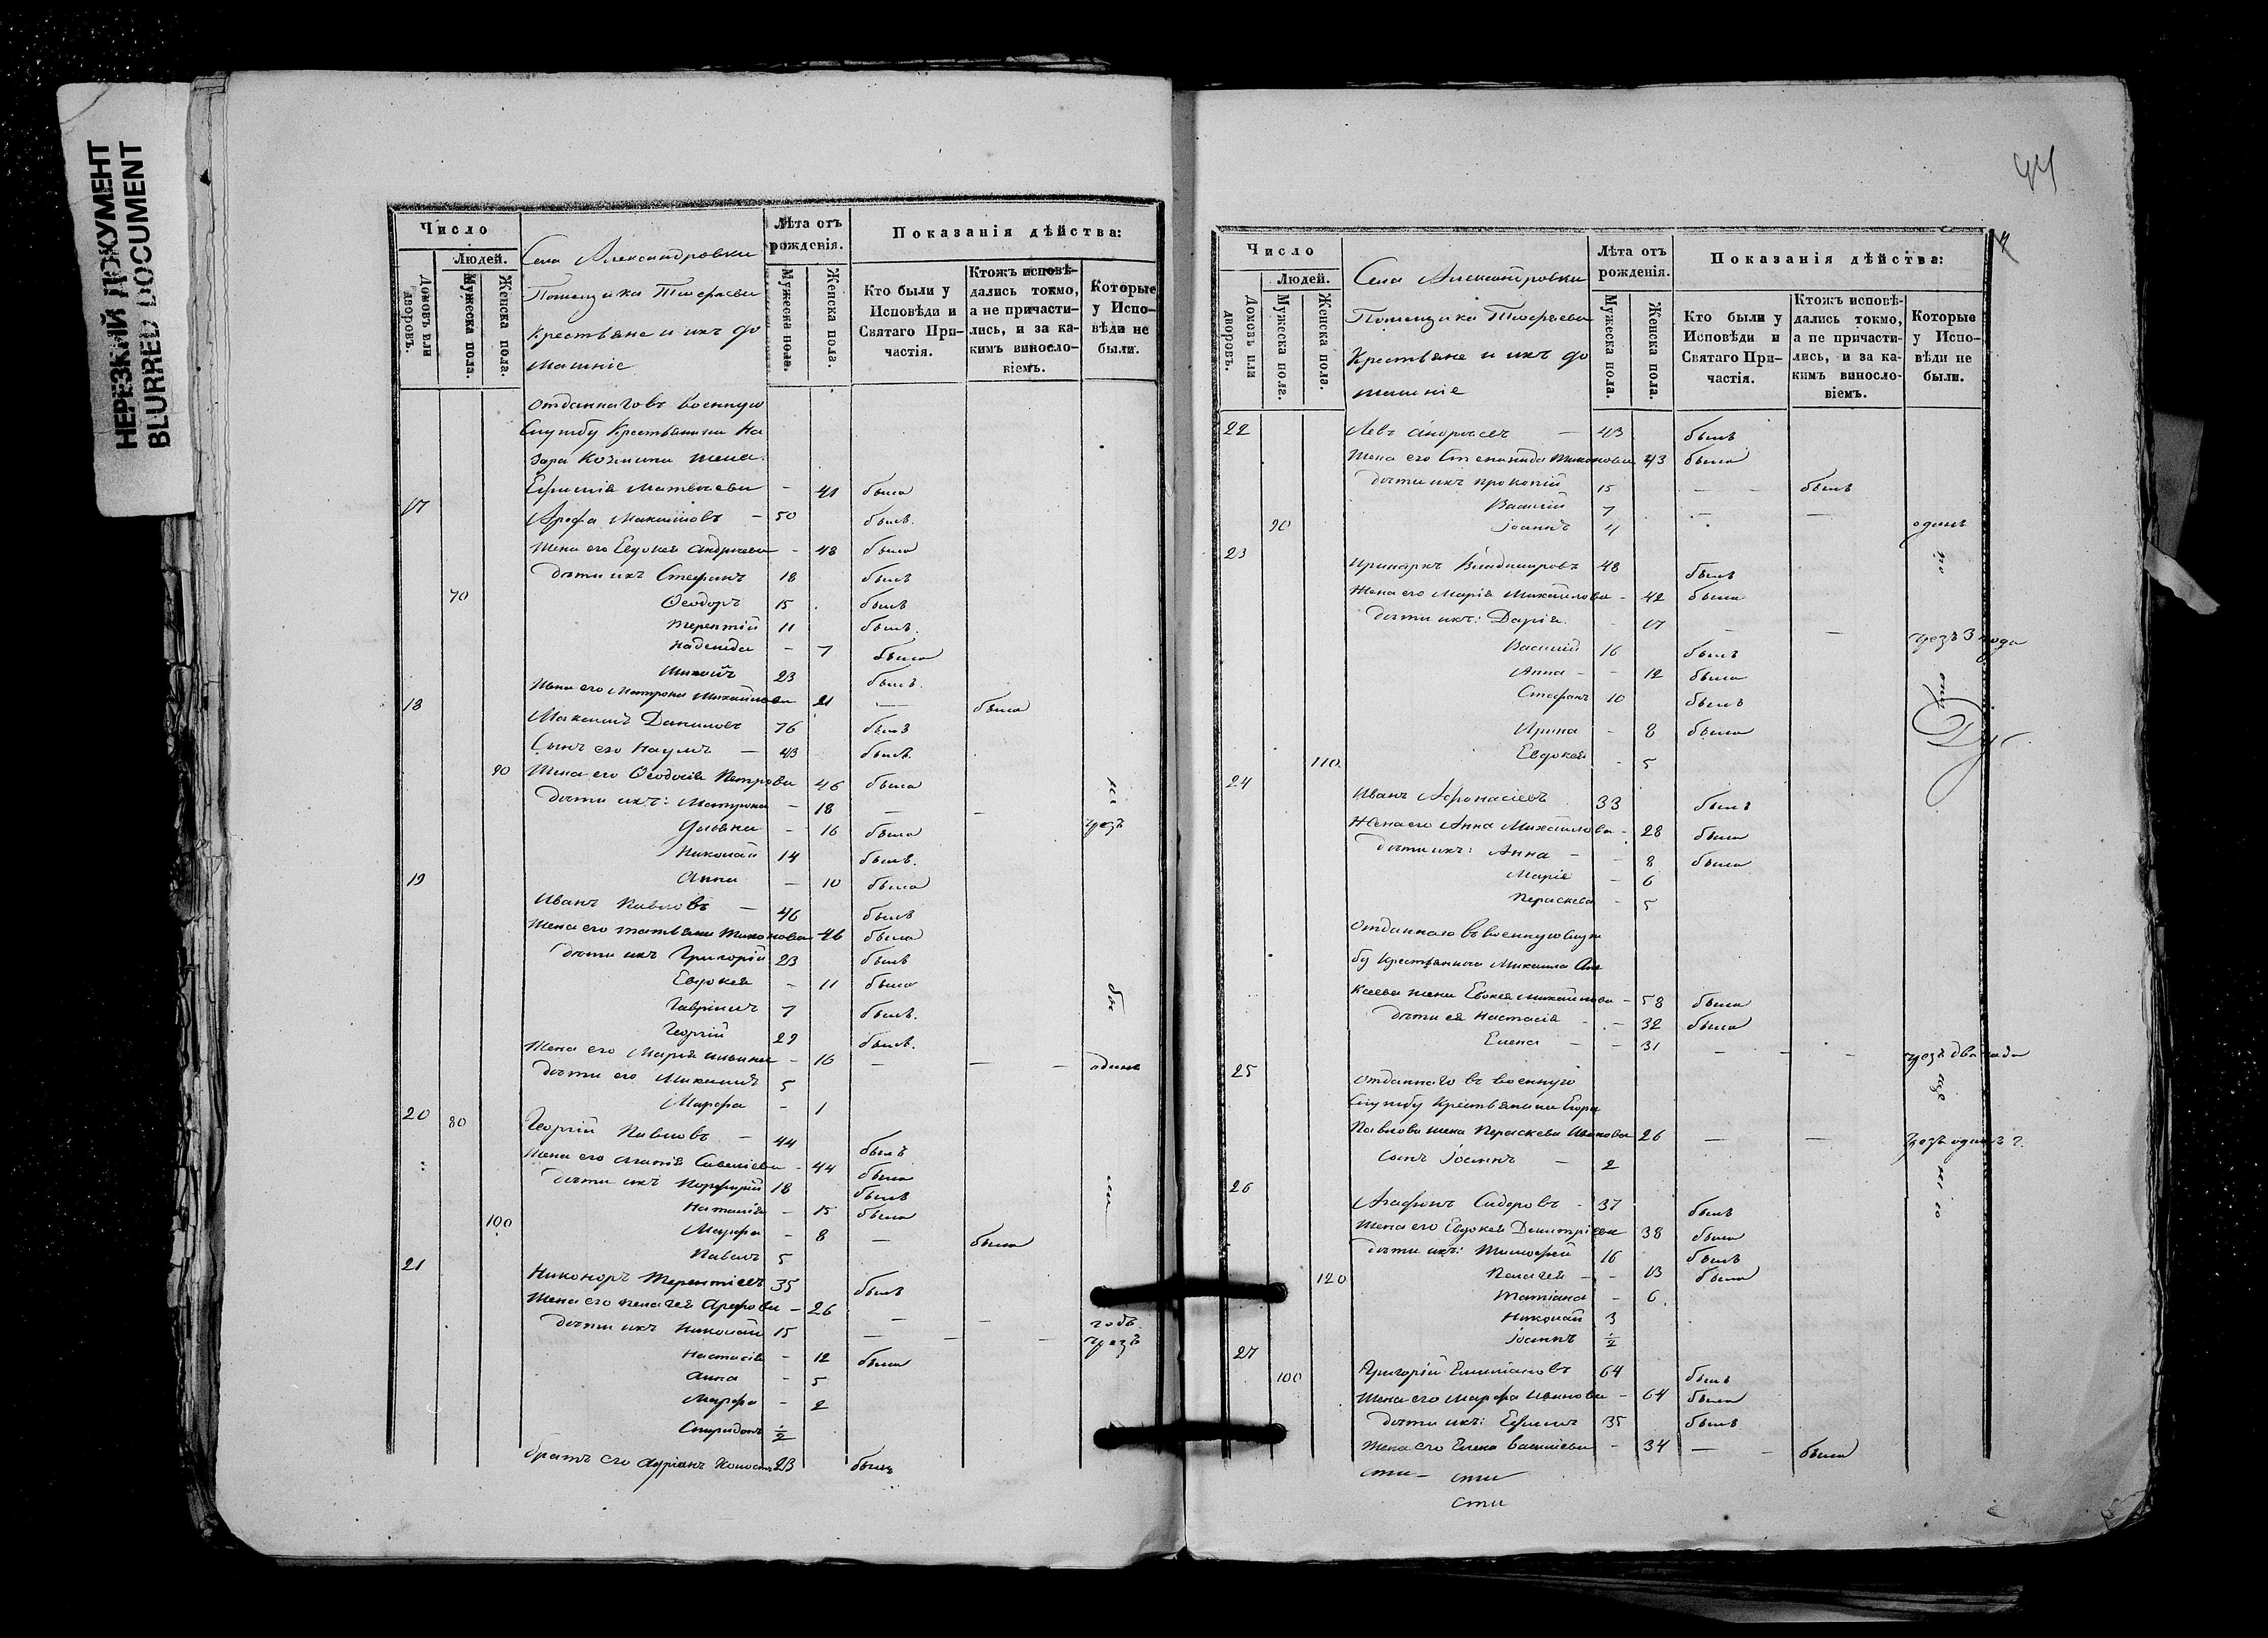 НЕРЕЗКИЙ ДОКУМЕНТ
BLURRED DOCUMENT
Число
Людей.
Домовъ или дворовъ.
Мужеска пола.
Женска пола.
Села Александровки
Помещика
Крестьяне и ихъ до
машніе
Лѣта отъ рожденія.
Мужеска пола.
Женска пола.
Показанія дѣйства:
Кто были у Исповѣди и Святаго При-частія.
Ктожъ исповѣ-дались токмо, а не причасти-лись, и за ка-кимъ винosло-віемъ.
Которые у Испо-вѣди не были.
отданнаго въ военную
Службу Крестьянина На
зара Козмина жена
Ефимія Матвѣева - 41 была
17 Арефа Максимовъ - 50 былъ.
Жена его Евдокея Андреева - 48 была
дѣти ихъ Стефанъ 18 былъ
70 Ѳеодоръ 15 былъ
Терентій 11 былъ.
Надежда - 7 была
23 былъ.
Жена его Матрона Михайлова 21 — была
18 Максимъ Даниловъ 76 былъ
Сынъ его Наумъ — 43 былъ.
90 Жена его Ѳеодосія Петрова 46 была
дѣти ихъ: Матрона - 18 — - чрезъ
Ульяна - 16 была
Николай 14 былъ.
Анна - 10 была
19 Иванъ Павловъ — 46 былъ
Жена его Татьяна Тихонова 46 была
дѣти ихъ Григорій 23 былъ
Евдокея - 11 была
Гавріилъ 7 былъ.
Георгій 29 былъ.
Жена его Марія Ильина - 16 — — - одинъ
дѣти его 5
Марфа - 1
20 80 Георгій Павловъ — 44 былъ
Жена его Савельева - 44 была
дѣти ихъ Порфирій 18 былъ
Наталія - 15 была
100 Марфа - 8 — была
Павелъ 5
21 Никоноръ Терентіевъ 35 былъ
Жена его Пелагея Арефова - 26 — — годъ
дѣти ихъ Николай 15 — — - чрезъ
Настасія - 12 была
Анна - 5
Марфа - 2
Спиридонъ ½
братъ его Адріанъ Холостъ 23 былъ
44
Число
Людей.
Домовъ или дворовъ.
Мужеска пола.
Женска пола.
Села Александровки
Помещика
Крестьяне и ихъ до
машніе
Лѣта отъ рожденія.
Мужеска пола.
Женска пола.
Показанія дѣйства:
Кто были у Исповѣди и Святаго При-частія.
Ктожъ исповѣ-дались токмо, а не причасти-лись, и за ка-кимъ виносло-віемъ.
Которые у Испо-вѣди не были.
22 Левъ Андреевъ — 43 былъ
Жена его Степанида Тихонова 43 была
дѣти ихъ Прокопій 15 — - былъ
Василій 7 — —
90 Іоаннъ 4 одинъ
23 Иринархъ Владимировъ 48 былъ
Жена его Марія Михайлова - 42 была
дѣти ихъ: Дарія - 17 — — чрезъ 3 года
Василій 16 былъ
Анна - - 12 была
Стефанъ 10 былъ
Ирина - 8 была
110. Евдокея - 5
24 Иванъ Афонасіевъ 33 былъ
Жена его Анна Михайлова - 28 была
дѣти ихъ: Анна - - 8 была
Марія - 6
Параскева - 5
Отданнаго въ военную служ
бу Крестьянина Михаила Але
ксеева жена Евдокея Михайлова - 58 была
дѣти ея Настасія - - 32 была
Елена - - 31 — - - чрезъ два года
25 отданнаго въ военную
Службу Крестьянина Егора
Павлова жена Параскева Иванова 26 — — чрезъ одинъ г.
сынъ Іоаннъ — 2
26 Агафонъ Сидоровъ - 37 былъ
Жена его Евдокея Димитріева 38 была
дѣти ихъ: Тимофей 16 былъ
120 Пелагея - - 13 была
Татіана - 6.
Николай 3
Іоаннъ ½
27
100 Григорій Емиліановъ 64 былъ
Жена его Марфа Иванова - 64 была
дѣти ихъ: Ефимъ 35 былъ
Жена его Елена Василіева - 34 — - была